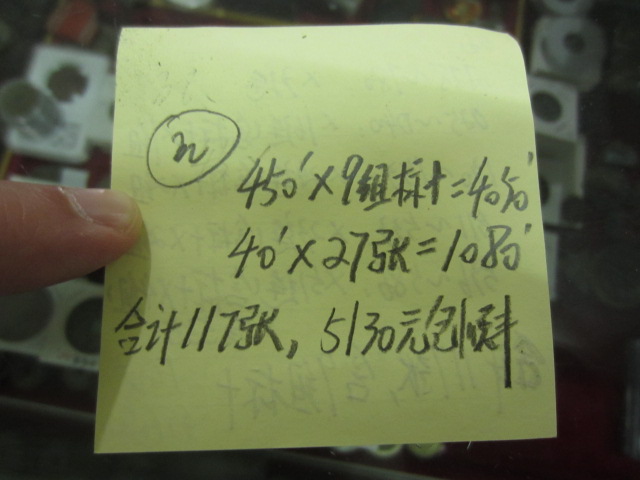 n
450'×9组标十=4050'
40'×27张=1080'
合计117张，5130元包顺丰